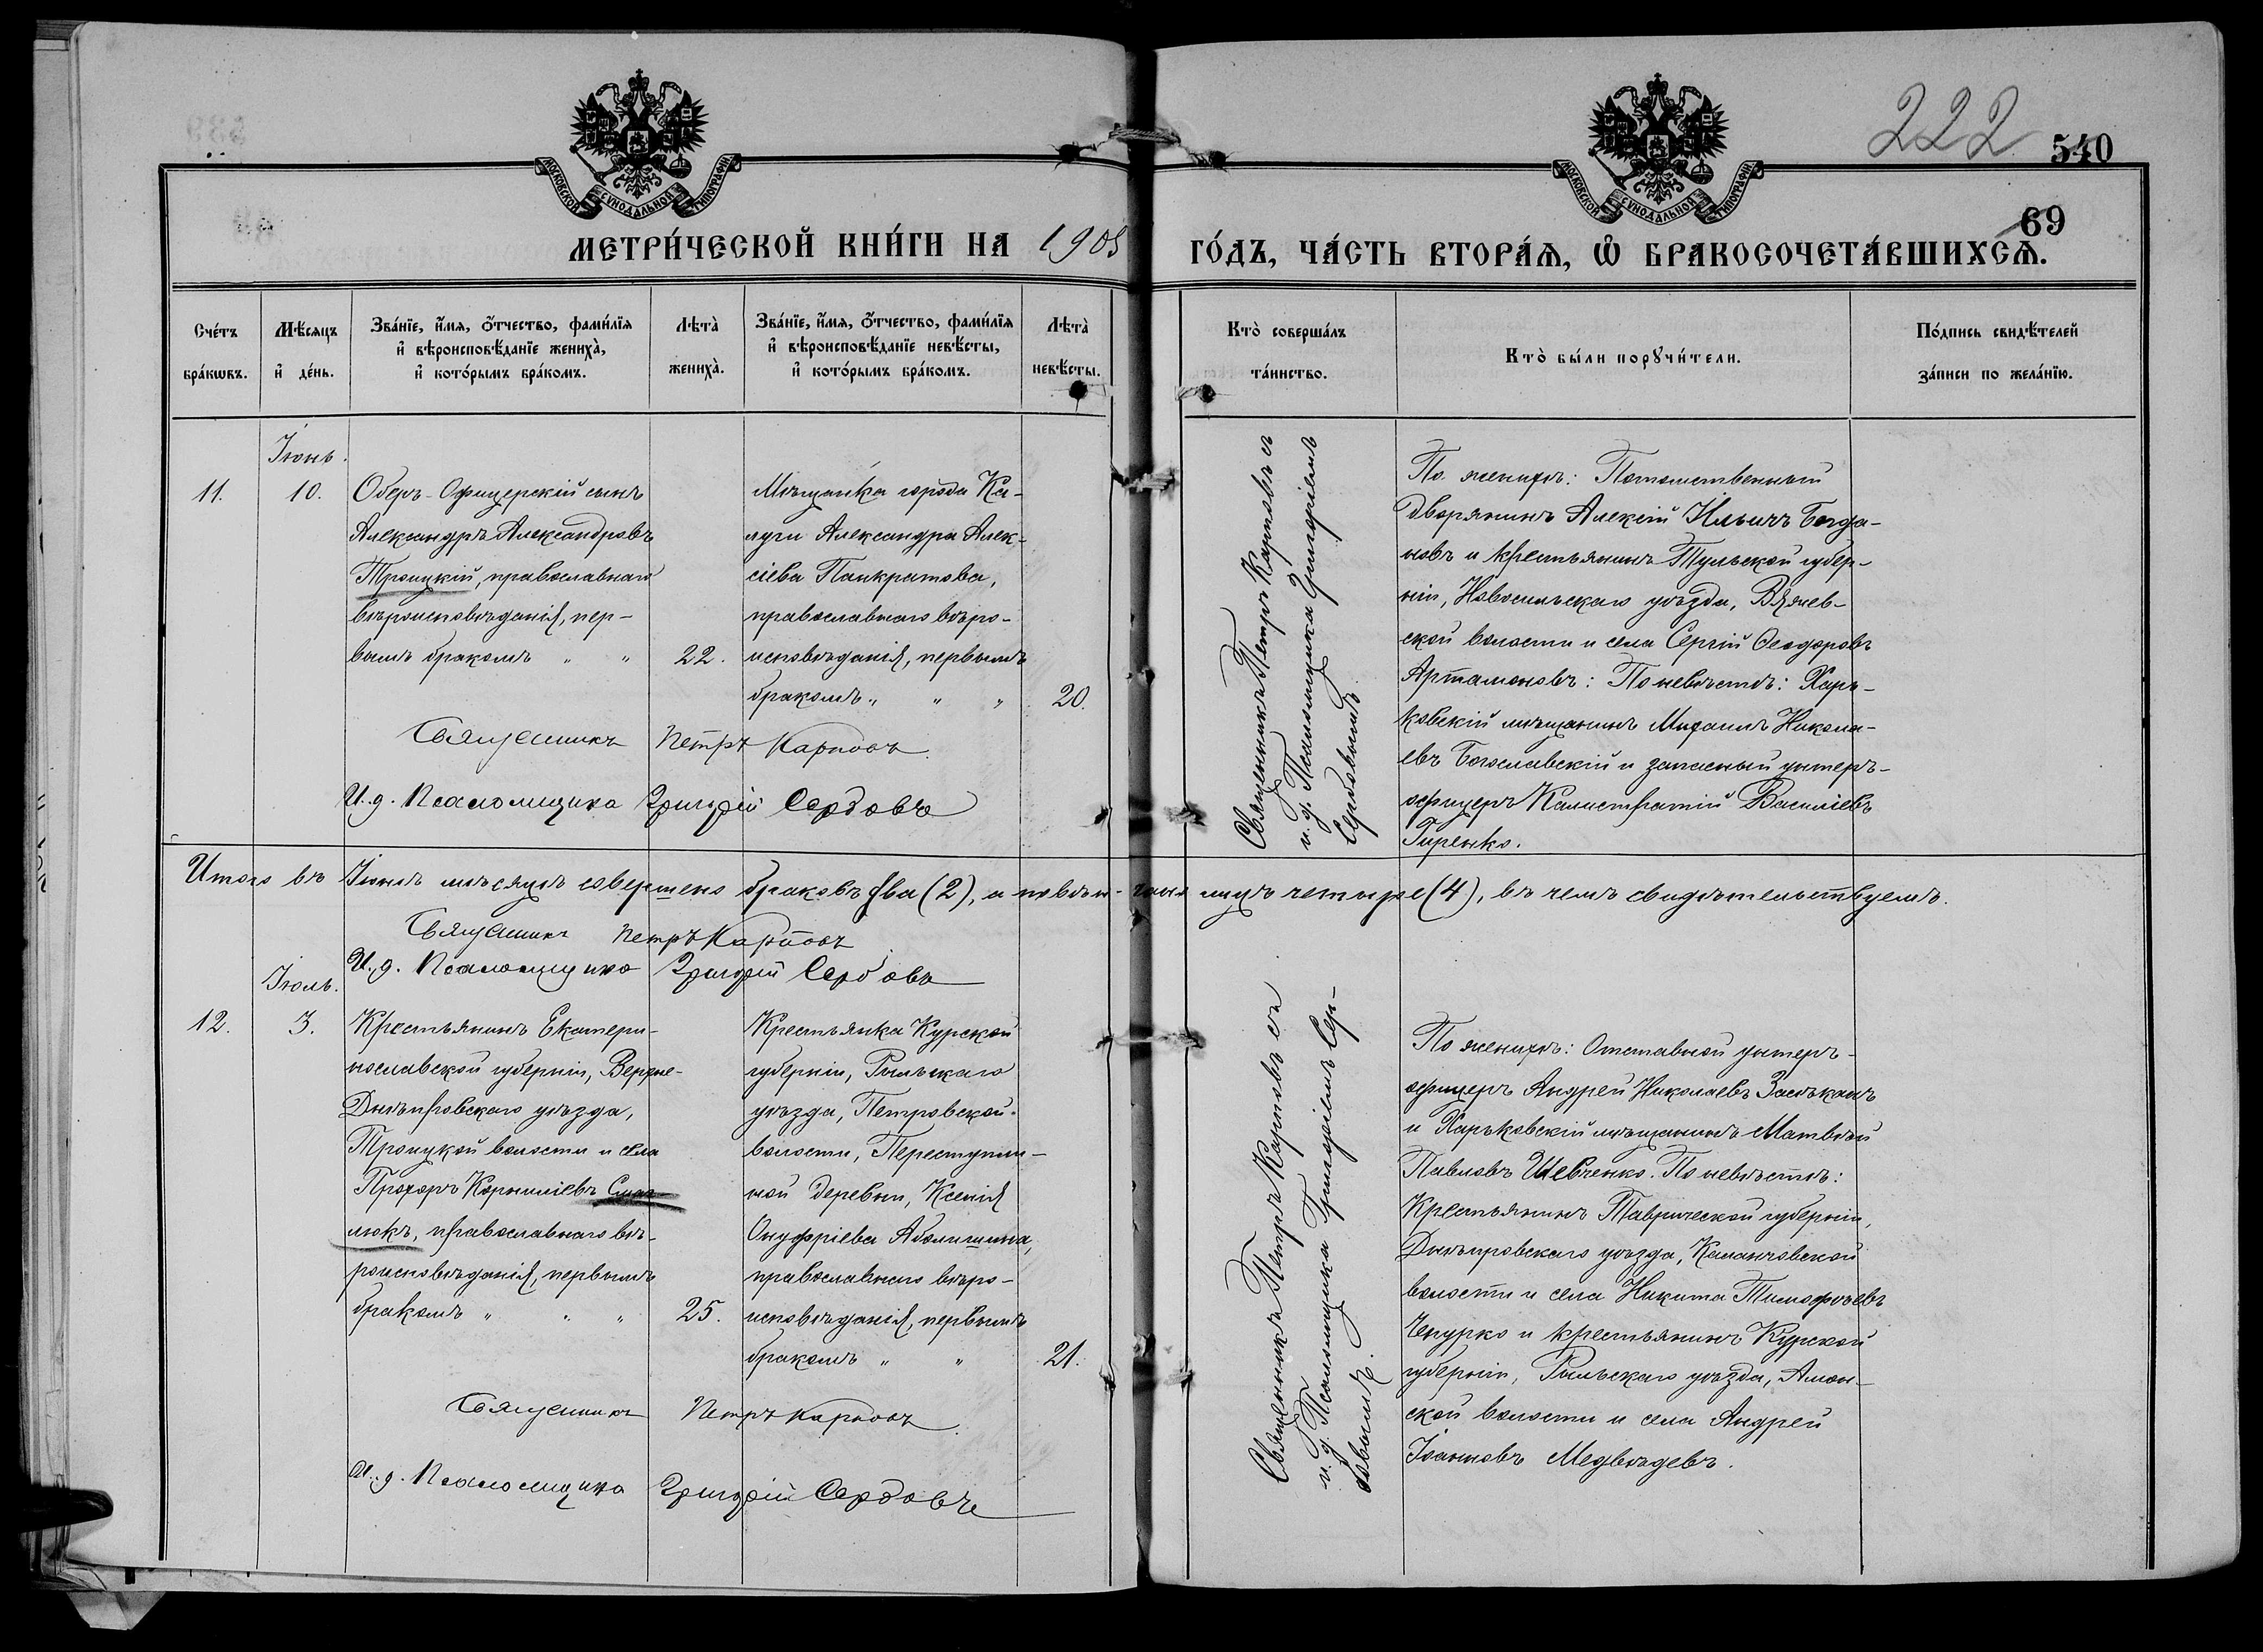 222
540
69
МОСКОВСКОЙ СѴНОДАЛЬНОЙ ТИПОГРАФІИ
МОСКОВСКОЙ СѴНОДАЛЬНОЙ ТИПОГРАФІИ
МЕТРИ́ЧЕСКОЙ КНИ́ГИ НА 1905 ГО́ДЪ, ЧА́СТЬ ВТОРА́Ѧ, Ѽ БРАКОСОЧЕТА́ВШИХСѦ.
Сче́тъ бра́кѡвъ.
Мѣ́сяцъ и҆ де́нь.
Зва́нїе, и҆́мѧ, ѻ҆́тчество, фами́лїѧ
и҆ вѣроисповѣ́данїе жениха̀,
и҆ кото́рымъ бра́комъ.
Лѣта̀ жениха̀.
Зва́нїе, и҆́мѧ, ѻ҆́тчество, фами́лїѧ
и҆ вѣроисповѣ́данїе невѣ́сты,
и҆ кото́рымъ бра́комъ.
Лѣта̀ невѣ́сты.
Кто̀ соверша́лъ
та́инство.
Кто̀ бы́ли порꙋчи́тели.
По́дпись свидѣ́телей
за́писи по жела́нїю.
Іюнь.
11.
10.
Оберъ-Офицерскій сынъ
Александръ Александровъ
Троицкій, православнаго
вѣроисповѣданія, пер-
вымъ бракомъ " "
22.
Мѣщанка города Ка-
луги Александра Алек-
сіева Панкратова,
православнаго вѣро-
исповѣданія, первымъ
бракомъ " " "
20.
Священникъ Петръ Карповъ
И. д. Псаломщика Григорій Сербовъ
Священникъ Петръ Карповъ съ
и. д. Псаломщика Григоріемъ
Сербовымъ
По женихѣ: Потомственный
Дворянинъ Алексій Ильичъ Богда-
новъ и крестьянинъ Тульской губер-
ніи, Новосильскаго уѣзда, Вяжев-
ской волости и села Сергій Ѳеодоровъ
Артамоновъ: По невѣстѣ: Харь-
ковскій мѣщанинъ Михаилъ Никола-
евъ Богославскій и запасный унтеръ-
офицеръ Калистратій Василіевъ
Гиренко.
Итого въ Іюнѣ мѣсяцѣ совершено браковъ два (2), а повѣн-чано лицъ четыре (4), въ чемъ свидѣтельствуемъ.
Священникъ Петръ Карповъ
И. д. Псаломщика Григорій Сербовъ
Іюль.
12.
3.
Крестьянинъ Екатери-
нославской губерніи, Верхне-
Днѣпровскаго уѣзда,
Троицкой волости и села
Прохоръ Корниліевъ
люкъ, православнаго вѣ-
роисповѣданія, первымъ
бракомъ " " "
25.
Крестьянка Курской
губерніи, Рыльскаго
уѣзда, Петровской
волости, Переступин-
ной деревни, Ксенія
Онуфріева Аболишина,
православнаго вѣро-
исповѣданія, первымъ
бракомъ " "
21.
Священникъ Петръ Карповъ
И. д. Псаломщика Григорій Сербовъ
Священникъ Петръ Карповъ съ
и. д. Псаломщика Григоріемъ Сер-
бовымъ.
По женихѣ: Отставной унтеръ-
офицеръ Андрей Николаевъ Засѣканъ
и Харьковскій мѣщанинъ Матвѣй
Павловъ Шевченко. По невѣстѣ:
Крестьянинъ Таврической губерніи,
Днѣпровскаго уѣзда, Каланчовской
волости и села Никита Тимофѣевъ
Чепурко и крестьянинъ Курской
губерніи, Рыльскаго уѣзда, Амон-
ской волости и села Андрей
Іоанновъ Медвѣдевъ.